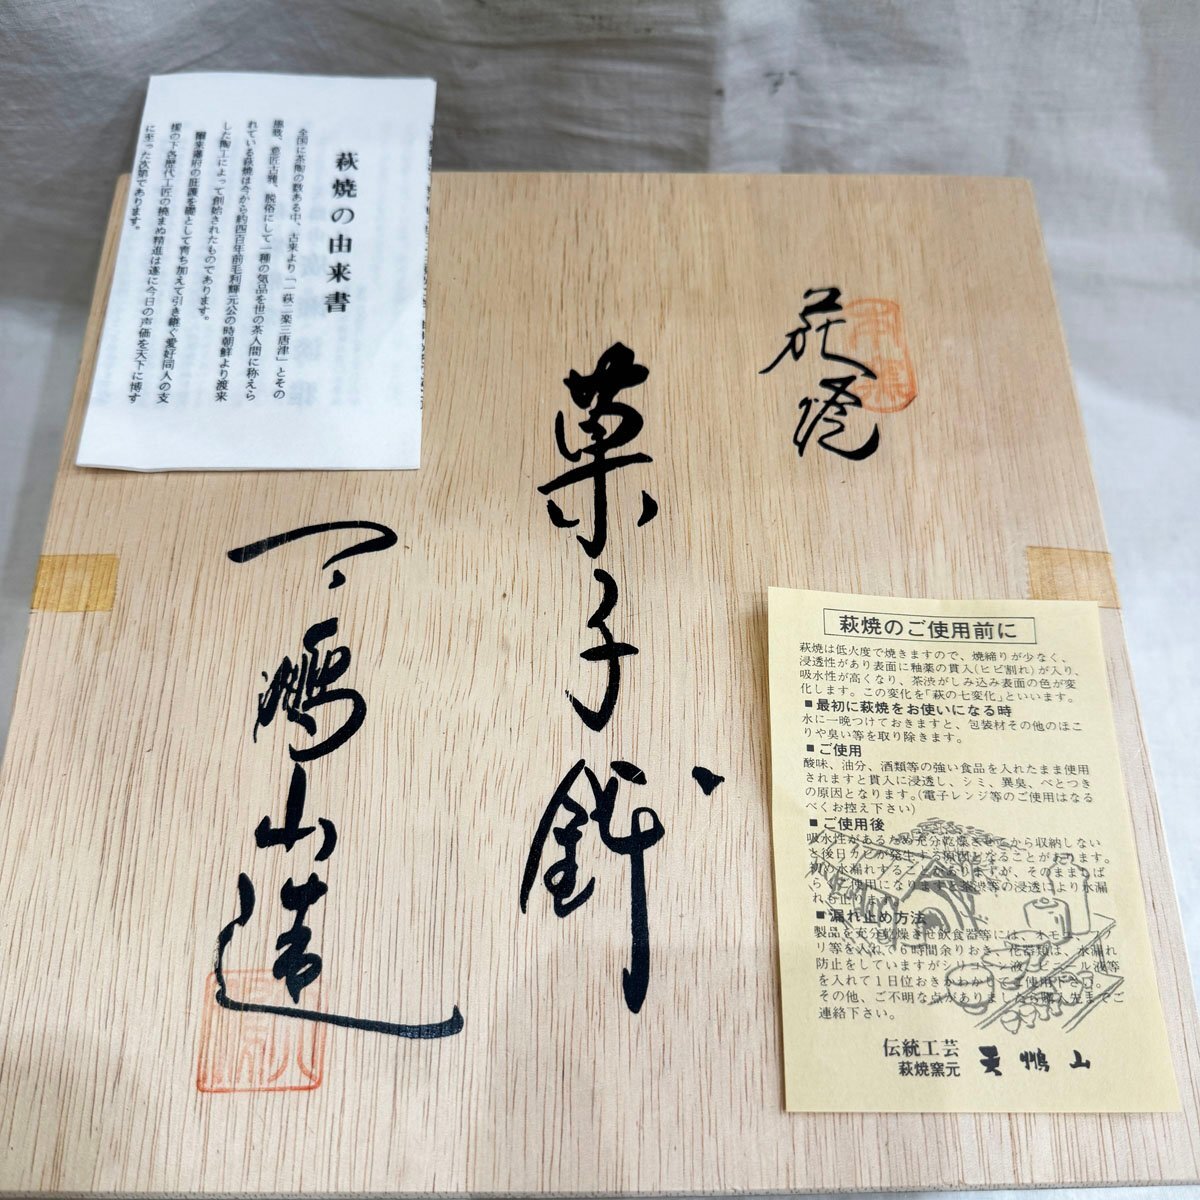 萩焼の由来書
全国に茶陶の数ある中、古来より「一萩二楽三唐津」とその
雅致、意匠古雅、脱俗にして一種の気品を世の茶人間に称えら
れている萩焼は今から約四百年前毛利輝元公の時朝鮮より渡来
した陶工によって創始されたものであります。
爾来藩府の庇護を礎として育ち加えて引き継ぐ愛好同人の支
援の下各歴代工匠の撓まぬ精進は遂に今日の声価を天下に博す
に至った次第であります。
萩焼
菓子鉢
天鵬山造
萩焼のご使用前に
萩焼は低火度で焼きますので、焼締りが少なく、
浸透性があり表面に釉薬の貫入(ヒビ割れ)が入り、
吸水性が高くなり、茶渋がしみ込み表面の色が変
化します。この変化を「萩の七変化」といいます。
■最初に萩焼をお使いになる時
水に一晩つけておきますと、包装材その他のほこ
りや臭い等を取り除きます。
■ご使用
酸味、油分、酒類等の強い食品を入れたまま使用
されますと貫入に浸透し、シミ、異臭、べとつき
の原因となります。(電子レンジ等のご使用はなる
べくお控え下さい)
■ご使用後
吸水性があるため充分乾燥させてから収納しない
と後日カビが発生する原因となることがあります。
初め水漏れすることがありますが、そのまましば
らくご使用になりますと茶渋等の浸透により水漏
れも止ります。
■漏れ止め方法
製品を充分乾燥させ飲食器等には、オモユ、ノ
リ等を入れて6時間余りおき、花器類は、水漏れ
防止をしていますがシリコーン液、ビニール液等
を入れて1日位おきかわかしてご使用下さい。
その他、ご不明な点がありましたら購入先までご
連絡下さい。
伝統工芸
萩焼窯元 天鵬山